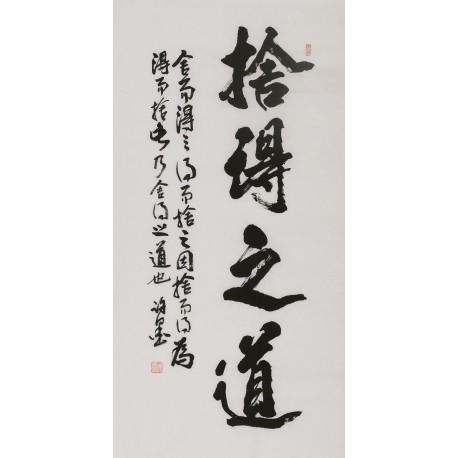 捨得之道
舍而得之得而捨之因捨而得為
得而捨此乃舍得之道也